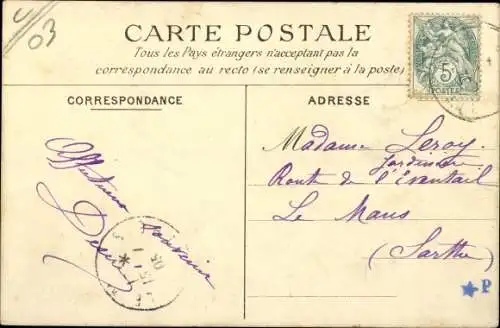 03
CARTE POSTALE
Tous les Pays étrangers n'acceptent pas la
correspondance au recto (se renseigner à la poste)
5c
POSTES
CORRESPONDANCE
ADRESSE
Affectueux souvenir
Madame Leroy
Jardinière
Route de l'Éventail
Le Mans
(Sarthe)
P